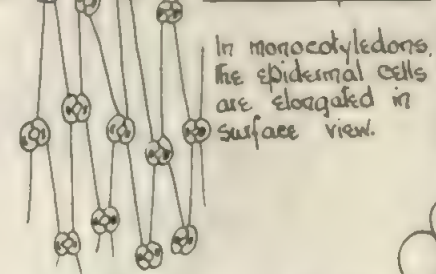 In monocotyledons,
the epidermal cells
are elongated in
surface view.